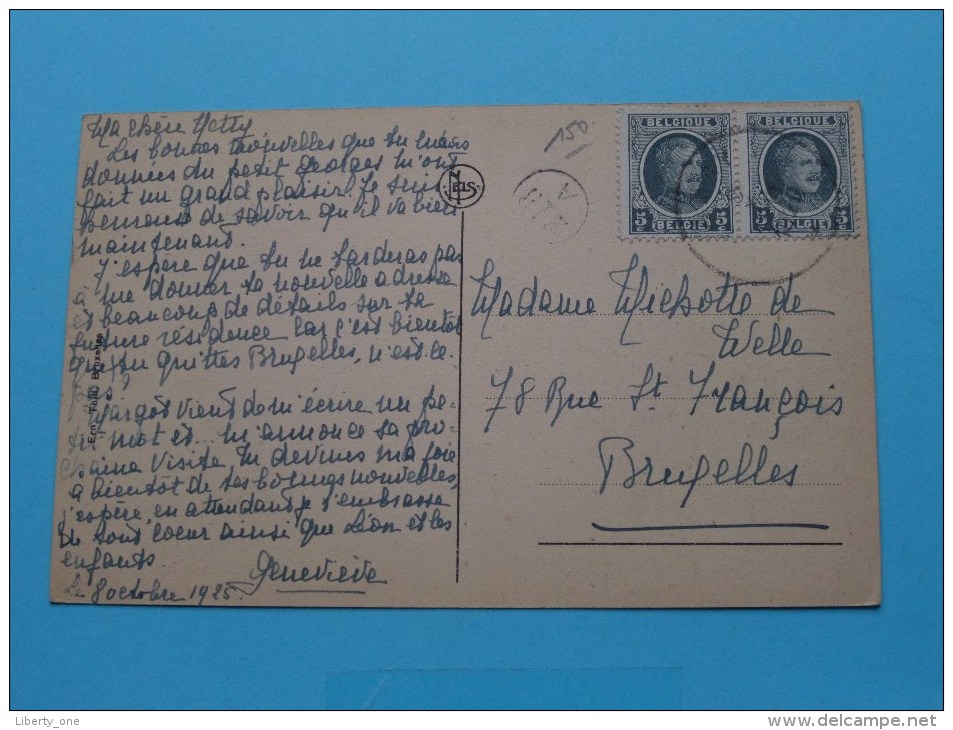 Ma chère Netty
Les bonnes nouvelles que tu m'avais
données du petit Georges m'ont
fait un grand plaisir. Je suis
heureuse de savoir qu'il va bien
maintenant.
J'espère que tu ne tarderas pas
à me donner ta nouvelle adresse
et beaucoup de détails sur ta
future résidence car c'est bientôt
que tu quittes Bruxelles, n'est-ce
pas?
Margot vient de m'écrire un pe-
tit mot et .. m'annonce sa pro-
chaine visite tu devines ma joie
à bientôt de tes bonnes nouvelles,
j'espère, en attendant je t'embrasse
de tout coeur ainsi que Léon et les
enfants.
Geneviève
Le 8 octobre 1925.
NELS
150
BELGIQUE
5 5
BELGIË
BELGIQUE
5 5
BELGIË
Madame Michotte de
Welle
78 Rue St. François
Bruxelles
Ern. Thill, Bruxelles
Liberty_one
www.delcampe.net